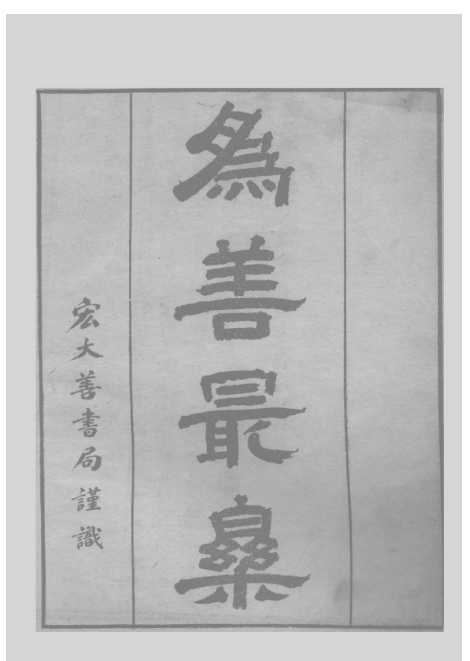 為善最樂
宏大善書局謹識